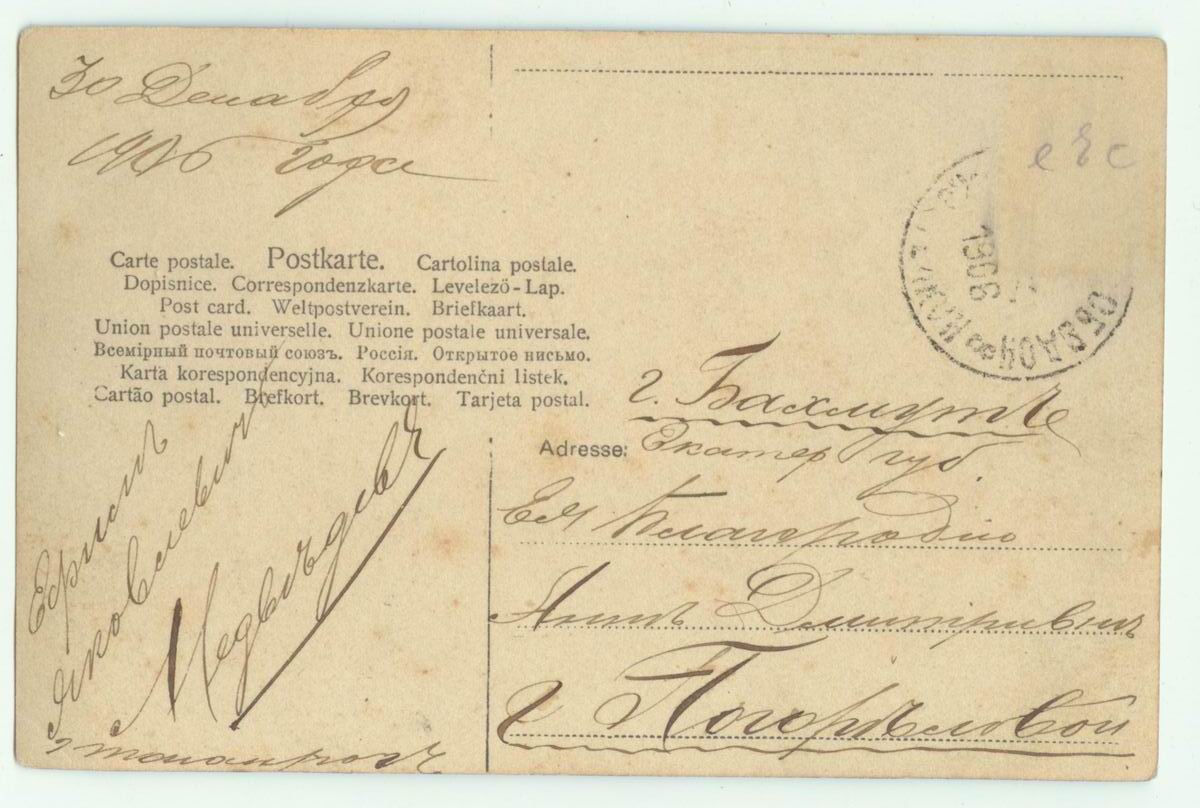 30 Декабря
1906 года
Carte postale. Postkarte. Cartolina postale.
Dopisnice. Correspondenzkarte. Levelező-Lap.
Post card. Weltpostverein. Briefkaart.
Union postale universelle. Unione postale universale.
Всемірный почтовый союзъ. Россія. Открытое письмо.
Karta korespondencyjna. Korespondenčni listek.
Cartão postal. Brefkort. Brevkort. Tarjeta postal.
Яковлевичъ
Медвѣдевъ
1906
г. Бахмутъ
Adresse: Екатер губ
Ея Благородію
Аннѣ Дмитривнѣ
Г Погорѣловой